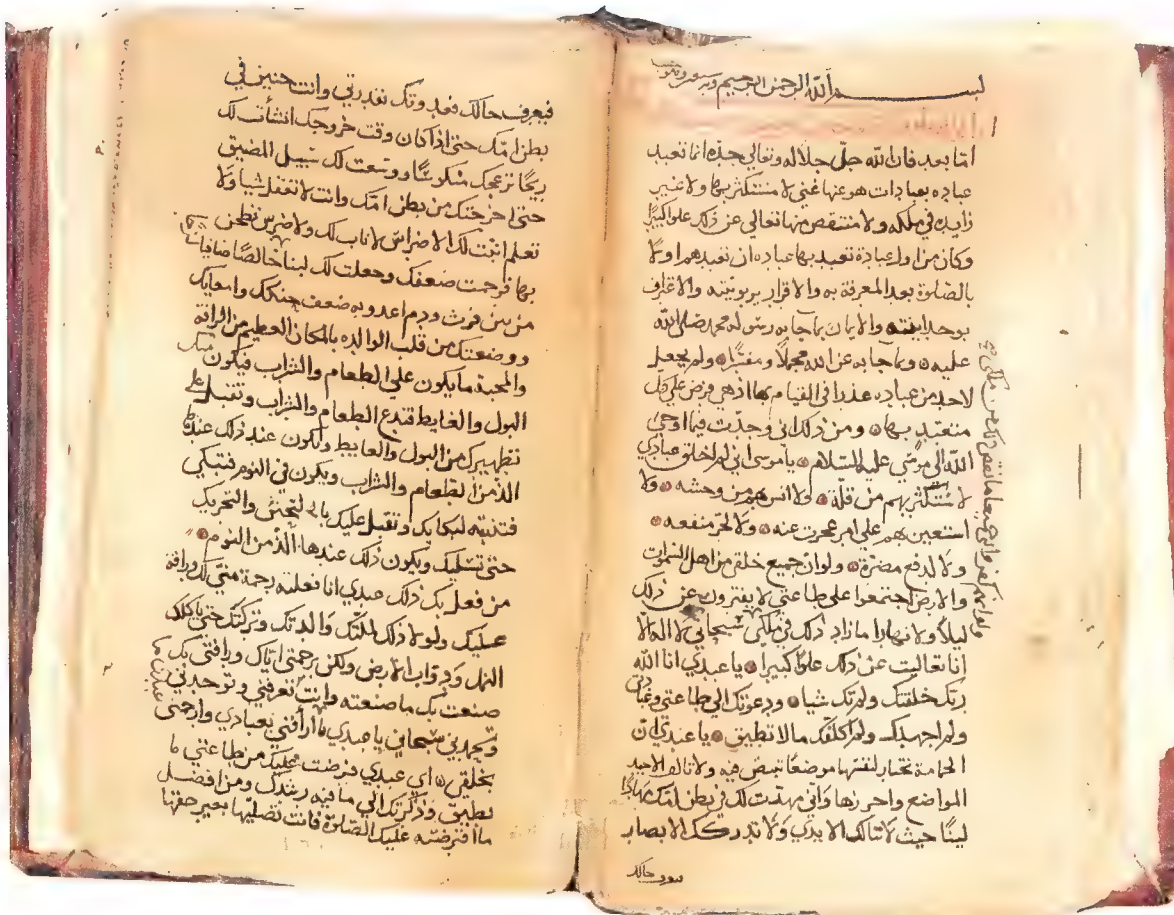 بسم الله الرحمن الرحيم وبه
اما بعد فان الله جل جلاله وتعالى جده انما تعبد
عباده بعبادات هو عنها غني لا متكثر بها ولا غير
زايده في ملكه ولا منتقص منها تعالى عن ذلك علوا كبيرًا
وكان من اول عبادة تعبد بها عباده ان تعبدهم اولا
بالصلوة بعد المعرفة به والاقرار بربوبيته والاعتراف
بوحدانيته والايمان بما جا به رسوله محمد صلى الله
عليه وبما جا به عن الله مجملًا ومفسّرًا ولم يجعل
لاحد من عباده عذرا في القيام بها اذ هي فرض على كل
متعبد بها ومن ذلك اني وجدت فيما اوحى
الله الى موسى عليه السلام يا موسى اني لم اخلق عبادي
لا ستكثر بهم من قلّة ولا انس بهم من وحشه ولا
استعين بهم على امر عجزت عنه ولا لجر منفعه
ولا لدفع مضرة ولو ان جميع خلقي من اهل السموات
والارض اجتمعوا على طاعتي لا يفترون عن ذلك
ليلًا ولا نهارا ما زاد ذلك في ملكي سبحاني لا اله الا
انا تعاليت عن ذلك علوا كبيرا يا عبدي انا الله
ربك خلقتك ولم تك شيا ودعوتك الى طاعتي وعبادتي
ولم اجهدك ولم اكلفك مالا تطيق يا عبدي ان
الحمامة تختار لنفسها موضعًا تبيض فيه ولا تالف الا جيد
المواضع واحرزها واني مهدت لك في بطن امك مهادًا
لينًا حيث لا تنالك الايدي ولا تدركك الابصار
ولو انهم كفروا بي جميعا ما نقص ذلك من ملكي
فيعرف حالك فغذوتك بقدرتي وانت جنين في
بطن امك حتى اذا كان وقت خروجك انشأت لك
ريحًا تزعجك منكوسًا ووسعت لك سبيل المضيق
حتى اخرجتك من بطن امك وانت لا تعقل شيا ولا
تعلم انبت لك الاضراس لا ناب لك ولا ضرس تطحن
بها فرحمت ضعفك وجعلت لك لبنا خالصًا صافيا
من بين فرث ودم اغدوبه ضعف حنكك وامعايك
ووضعتك من قلب الوالده بالمكان العظيم من الرافة
والمحبة ما يكون على الطعام والشراب فيكون منك
البول والغايط فتدع الطعام والشراب وتقبل على
تطهيرك من البول والغايط ويكون عند ذلك عندها
الذّ من الطعام والشراب ويكون في النوم فتبكي
فتنتبه لبكايك وتقبل عليك بالتحنن والتحريك
حتى تسليك ويكون ذلك عندها الذّ من النوم
من فعل بك ذلك عبدي انا فعلته رحمة منّي لك ورافة
عليك ولولا ذلك لملّتك والدتك وتركتك حتى ياكلك
النمل ودواب الارض ولكن رحمتي اياك ورافتي بك
صنعت بك ما صنعته وانت تعرفني وتوحدني
وتحمدني سبحاني يا عبدي ما ارأفني بعبادي وارحمني
بخلقي اي عبدي فرضت عليك من طاعتي ما
تطيق وذكّرتك الى ما فيه رشدك ومن افضل
ما افترضته عليك الصلوة فانت تصليها بغير حقها